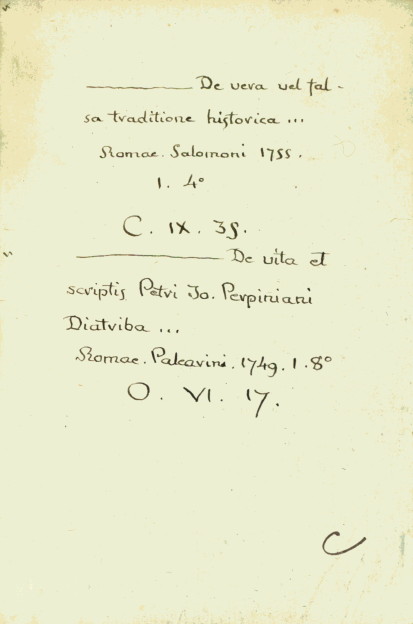 ——— De vera vel fal-
sa traditione historica ...
Romae. Salomoni 1755.
1. 4º
C. IX. 35.
——— De vita et
scriptis Petri Jo. Perpiniani
Diatriba ...
Romae. Paleavini. 1749. 1. 8º
O. VI. 17.
C